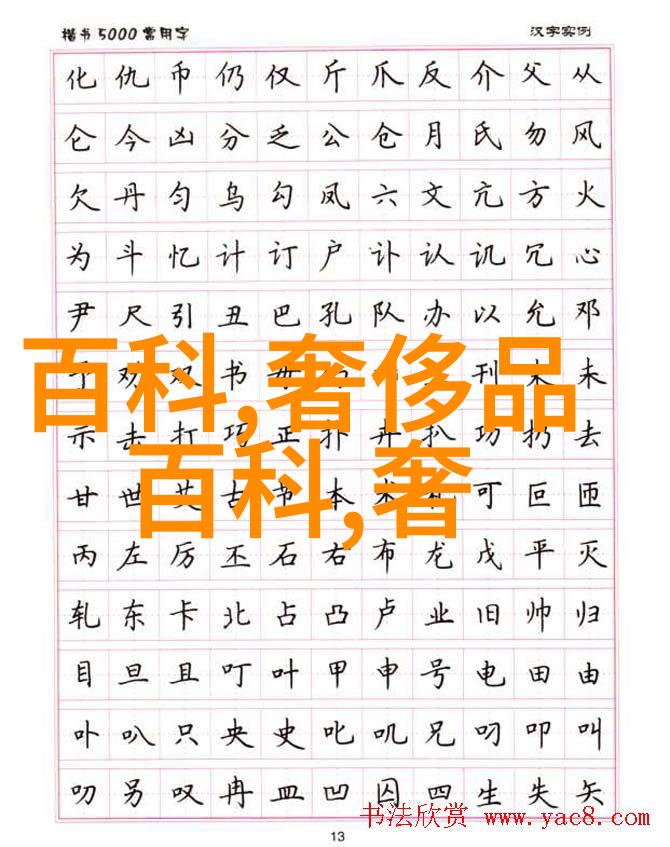 楷书5000常用字 汉字实例
化仇币仍仅斤爪反介父从
仑今凶分乏公仓月氏勿风
欠丹匀乌勾凤六文亢方火
为斗忆计订户讣认讥冗心
尹尺引丑巴孔队办以允邓
劝双书刊末未
百科,奢侈品
示击打巧正扑卉扒功扔去
百科,奢
甘世艾古节本术札可叵匝
丙左厉丕石右布龙戊平灭
轧东卡北占凸卢业旧帅归
目旦且叮叶甲申号电田由
卟叭只央史叱叽兄叼叩叫
叻另叹冉皿凹囚四生失矢
书法欣赏 www.yac8.com
13